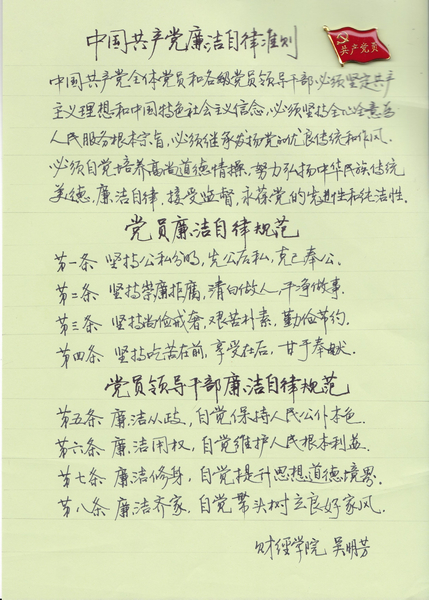 中国共产党廉洁自律准则
共产党员
中国共产党全体党员和各级党员领导干部必须坚定共产
主义理想和中国特色社会主义信念，必须坚持全心全意为
人民服务根本宗旨，必须继承发扬党的优良传统和作风，
必须自觉培养高尚道德情操，努力弘扬中华民族传统
美德，廉洁自律，接受监督，永葆党的先进性和纯洁性。
党员廉洁自律规范
第一条 坚持公私分明，先公后私，克己奉公。
第二条 坚持崇廉拒腐，清白做人，干净做事。
第三条 坚持尚俭戒奢，艰苦朴素，勤俭节约。
第四条 坚持吃苦在前，享受在后，甘于奉献。
党员领导干部廉洁自律规范
第五条 廉洁从政，自觉保持人民公仆本色。
第六条 廉洁用权，自觉维护人民根本利益。
第七条 廉洁修身，自觉提升思想道德境界。
第八条 廉洁齐家，自觉带头树立良好家风。
财经学院 吴明芳